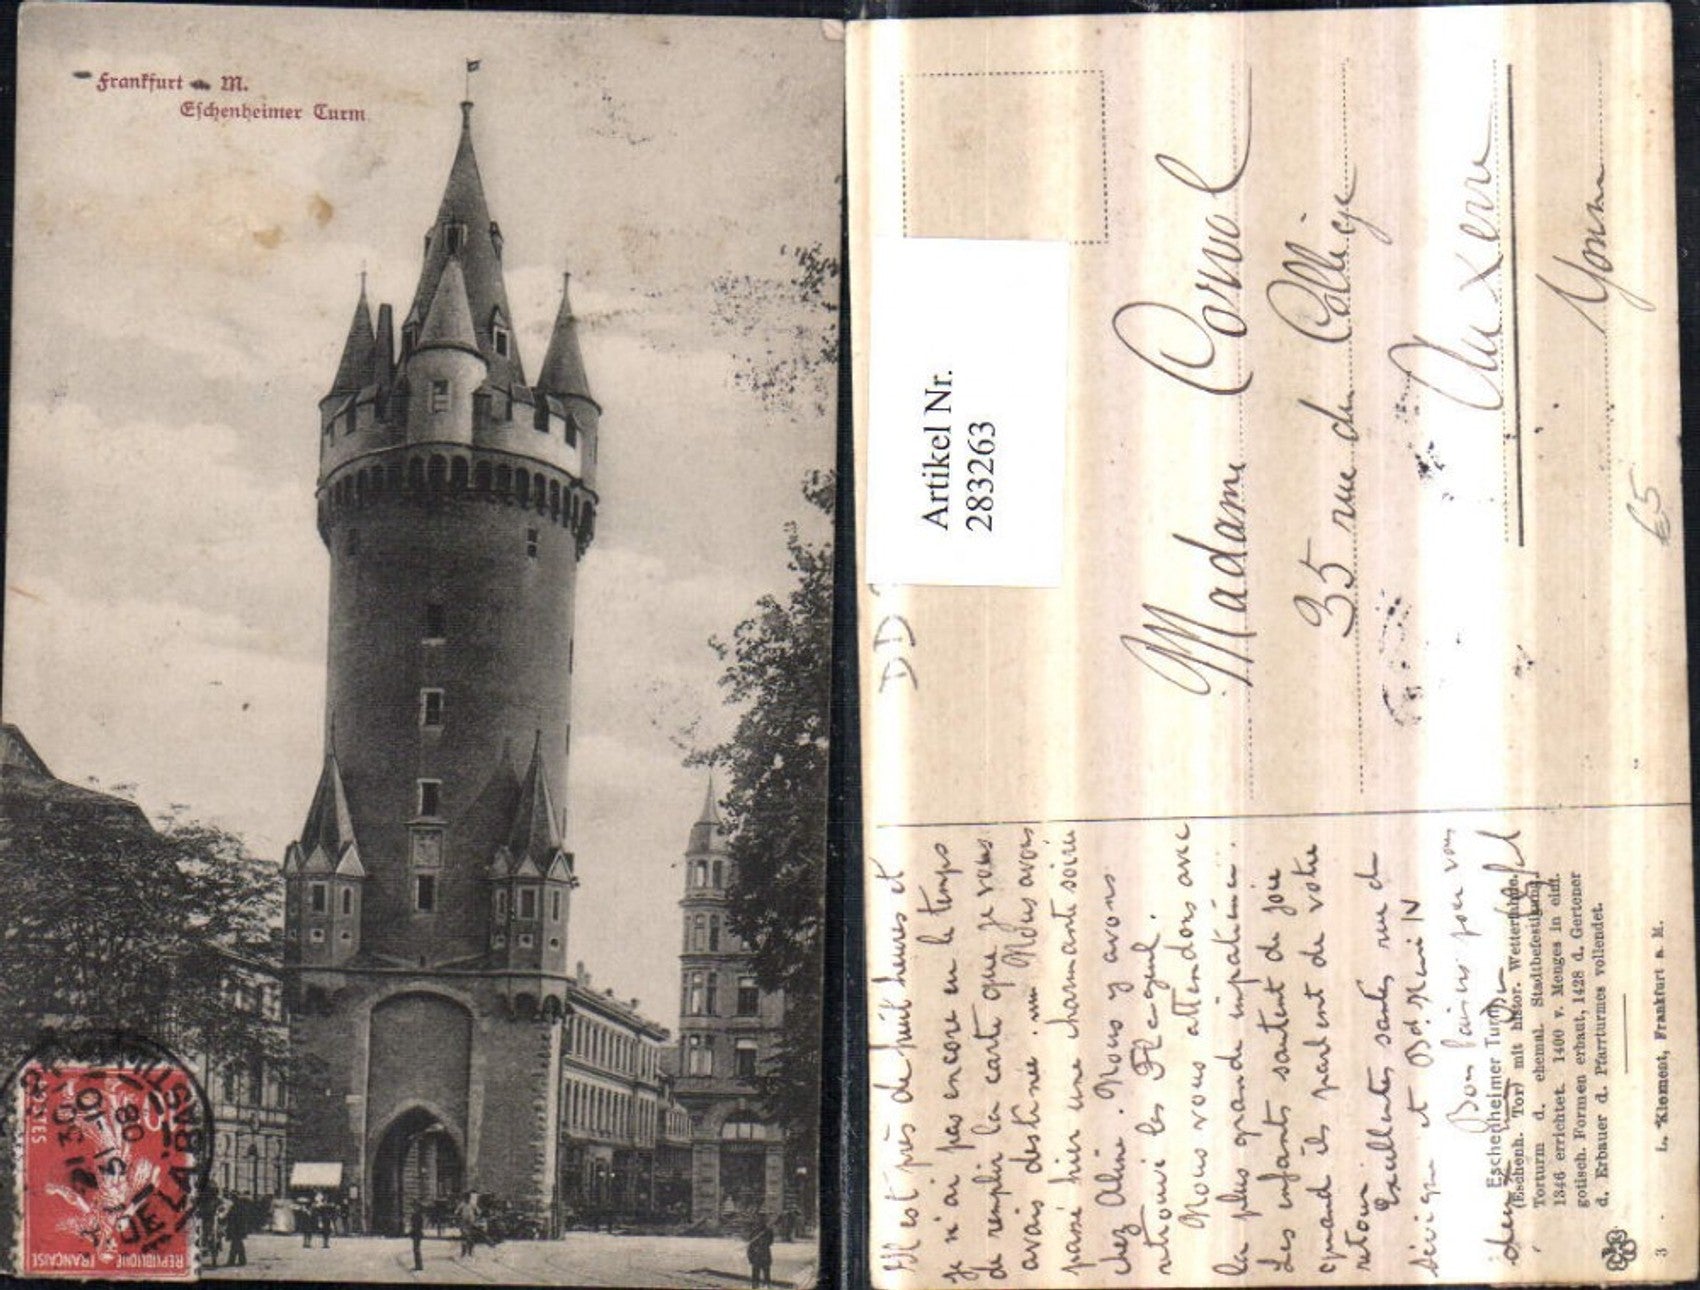 Frankfurt a. M.
Eschenheimer Turm
REPUBLIQUE FRANÇAISE
POSTES
10
21 30
15 -10
08
Artikel Nr.
283263
DD
Madame Corvol
35 rue du Collège
Auxerre
Yonne
€5
Il est près de huit heures et
je n'ai pas encore eu le temps
de remplir la carte que je vous
avais destinée. Nous avons
passé hier une charmante soirée
chez Aline. Nous y avons
retrouvé les
Nous vous attendons avec
la plus grande impatience.
Les enfants sautent de joie
quand ils parlent de votre
retour
Excellentes santés rue de
et Bd. Henri IV
Bons baisers pour vous
Eschenheimer Turm
Eschenh. Tor) mit histor. Wetterfahne.
Torturm d. ehemal. Stadtbefestigung
1346 errichtet. 1400 v. Menges in einf.
gotisch. Formen erbaut, 1428 d. Gertener
d. Erbauer d. Pfarrturmes vollendet.
3
L. Klement, Frankfurt a. M.